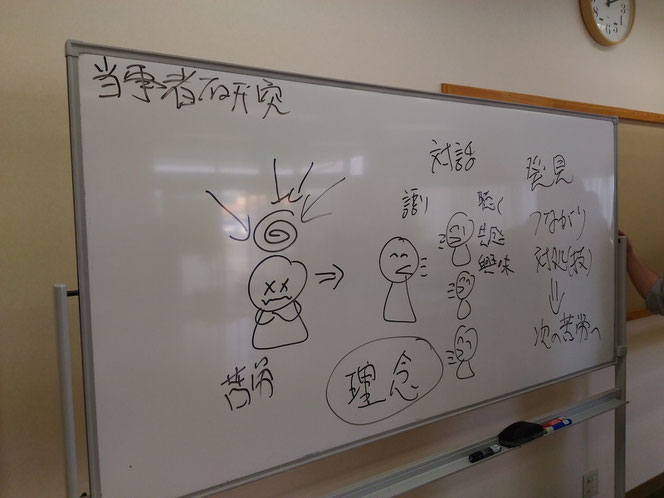 当事者研究
苦労
対話
語り
聴く
共感
興味
理念
発見
つながり
対処(技)
次の苦労へ